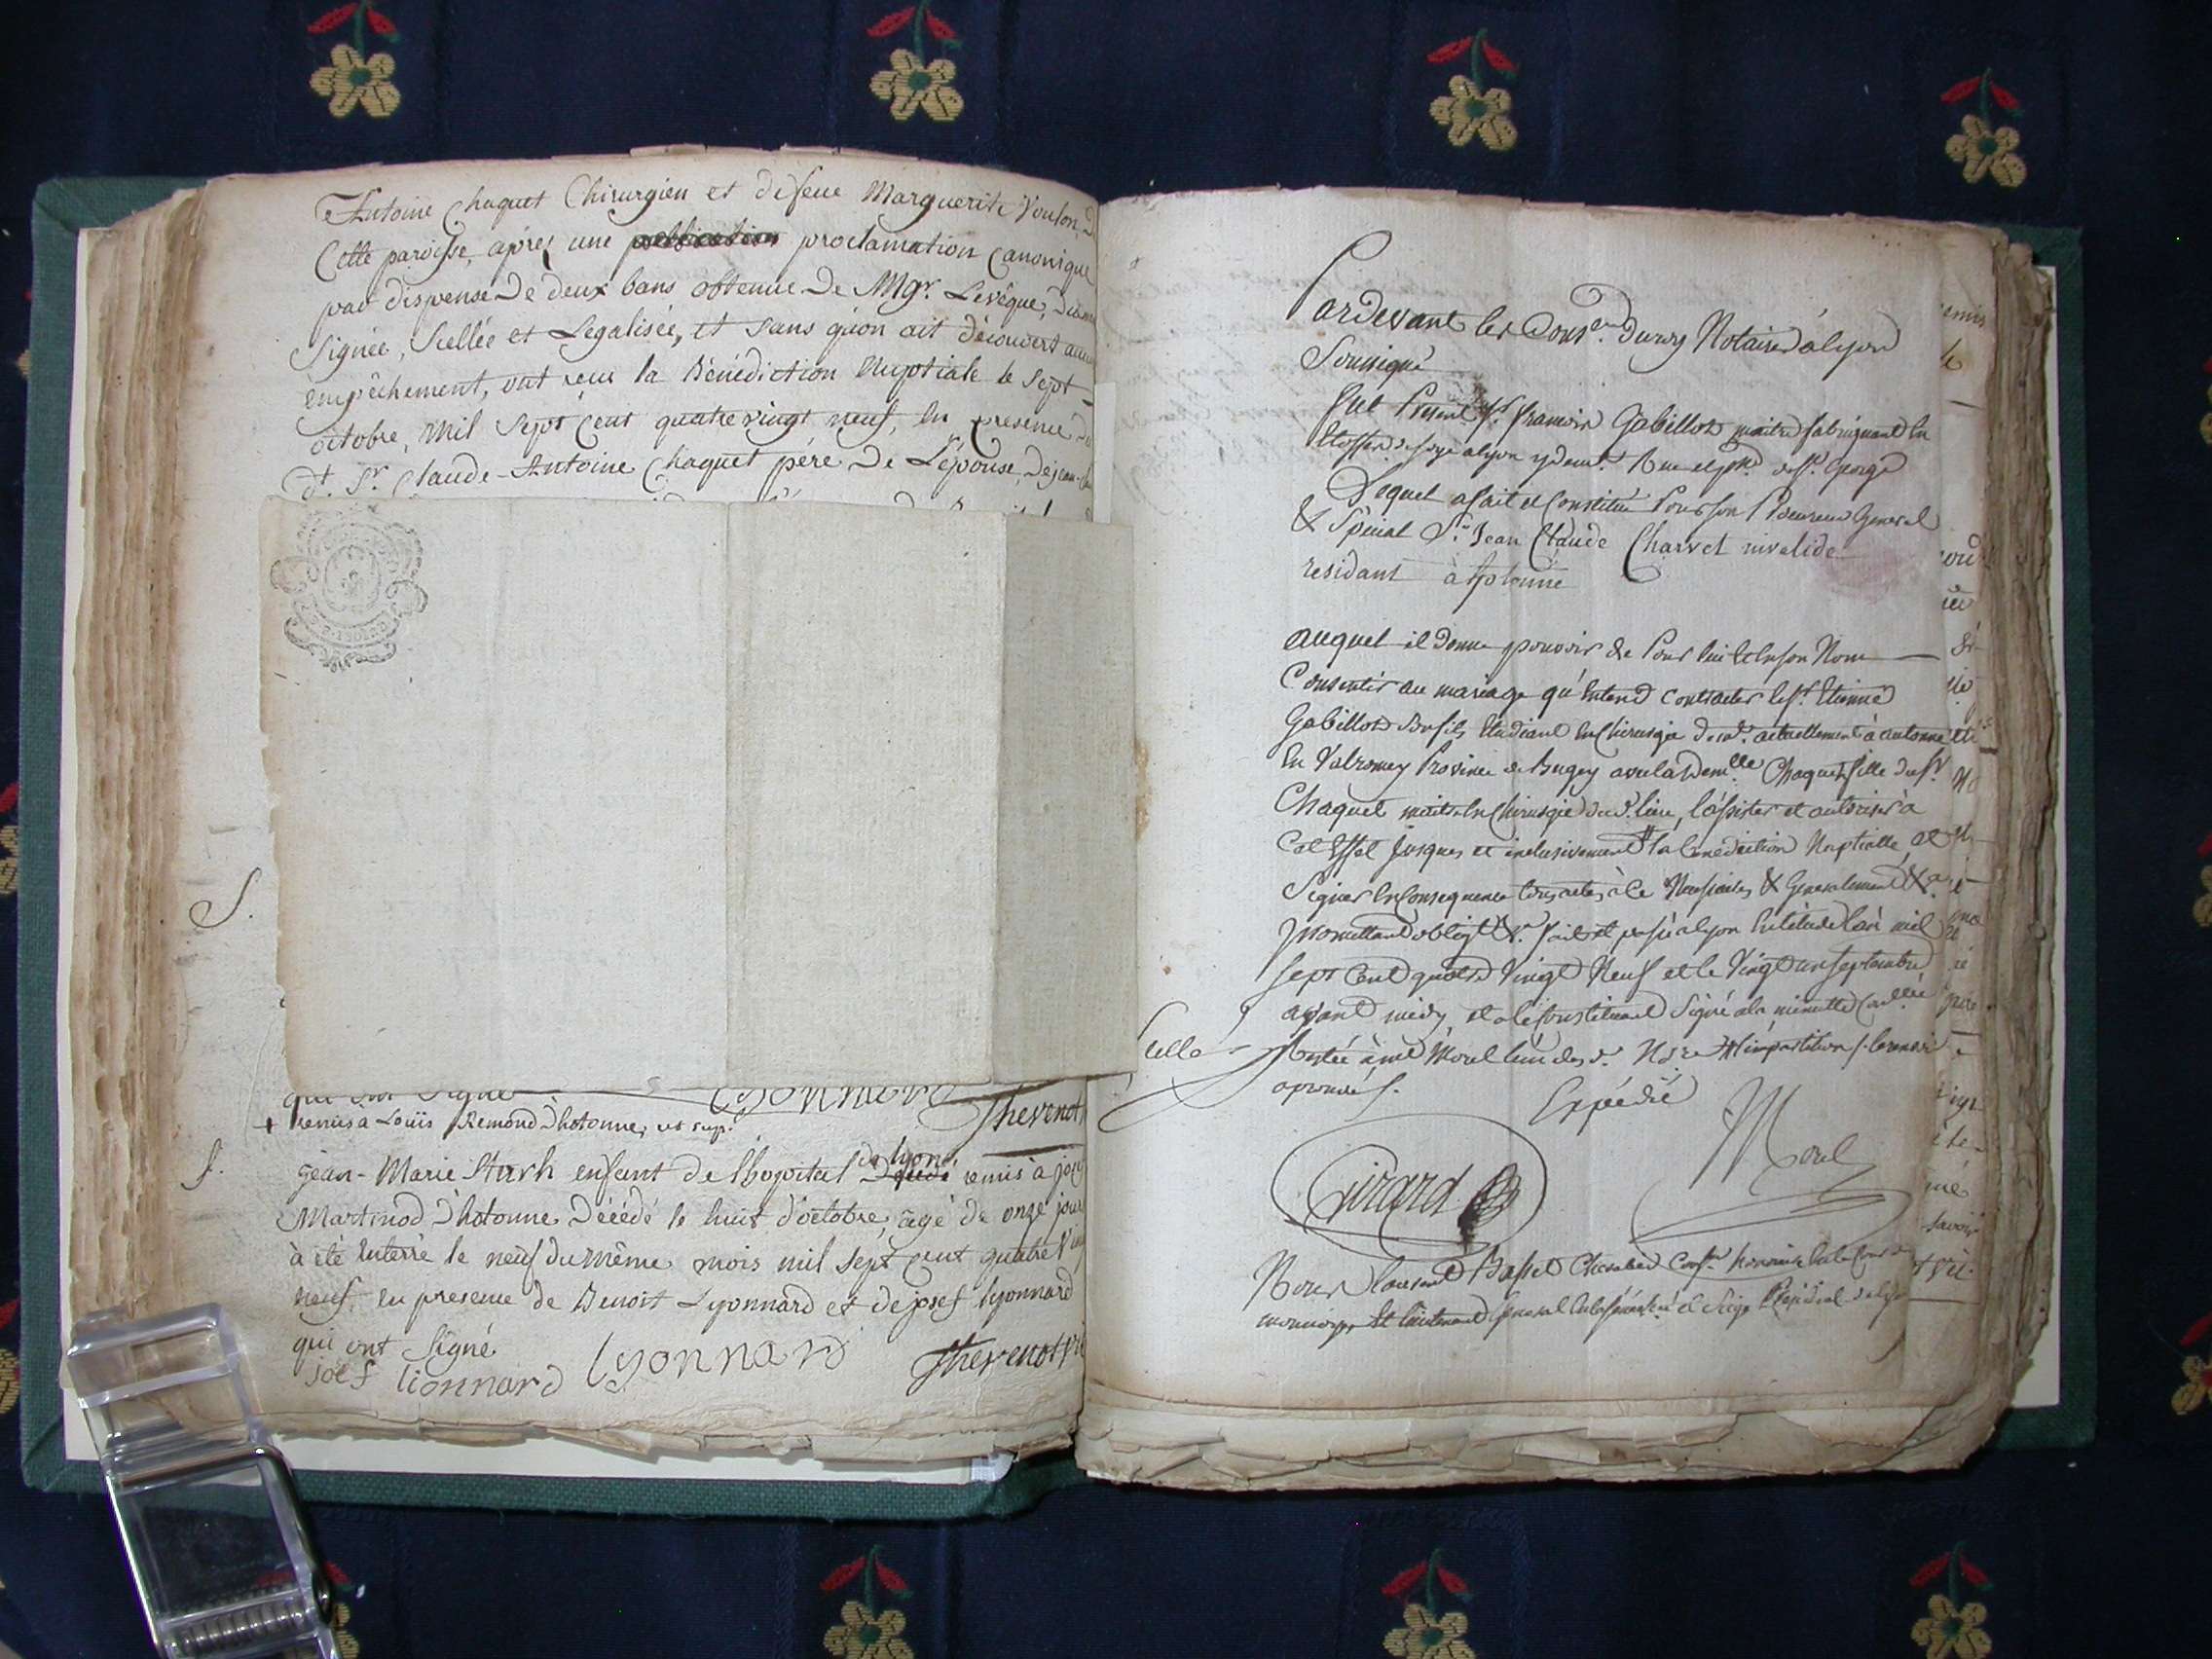 Antoine Chaquet Chirurgien et de feue Marguerite Voulon, d
Cette paroisse, aprés une proclamation Canonique
par dispense De deux bans obtenue De Mgr. Levêque,
Signée, Scellée et Legalisée, et Sans qu'on ait découvert aucun
empêchement, ont recu la Bénédiction Nuptiale le Sept
octobre, Mil Sept Cent quatrevingt neuf, en presence
dt. Sr. Claude-Antoine Chaquet père De L'épouse,
S.
qui ont Signé Lyonnard Thevenot
+ remis à Loüis Remond Dhotonne, ut sup.
S.
jean-Marie enfant de lhopital de lyon remis à
Martinod Dhotonne Décédé le huit d'octobre, âgé de onze jours
à été enterré le neuf du même mois mil sept cent quatre
neuf en presence de Benoit Lyonnard et de josef lyonnard
qui ont Signé
joef lionnard Lyonnard Thevenot
Pardevant les Notaires à lyon
Soussigné
fut Present Sr. francois Gabillot maitre fabriquant En
Etoffes de soye a lyon y demt. Rue et St. George
Lequel a fait et Constitué Pour son Procureur General
& Spécial Sr. Jean Claude Charvet invalide
residant à hotonne
auquel il donne pouvoir de Pour lui et En son Nom
Consentir au mariage qu'entend Contracter le Sr. Etienne
Gabillot Son fils Etudiant En Chirurgie actuellement à autonne
En Valromey Province de Bugey avec la Demlle Chaquet fille du Sr.
Chaquet maitre En Chirurgie dud. lieu, l'assister et autoriser à
Cet Effet jusques et inclusivement la benediction Nuptialle, et
Signer En Consequence tous actes à ce Necessaires & Generalement &a.
promettant obligt &a. fait et passé a lyon En l'étude l'an mil
sept Cent quatre Vingt Neuf et le Vingt un septembre
avant midy, et a le Constituant Signé a la minutte
Scellé Restée à me Morel l'un des
aprouvé
Expédié
Girard Morel
Nous laurent Basset Chevalier honoraire En la Cour
Lieutenant General En la Sénéchaussée et Siege Présidial de lyon